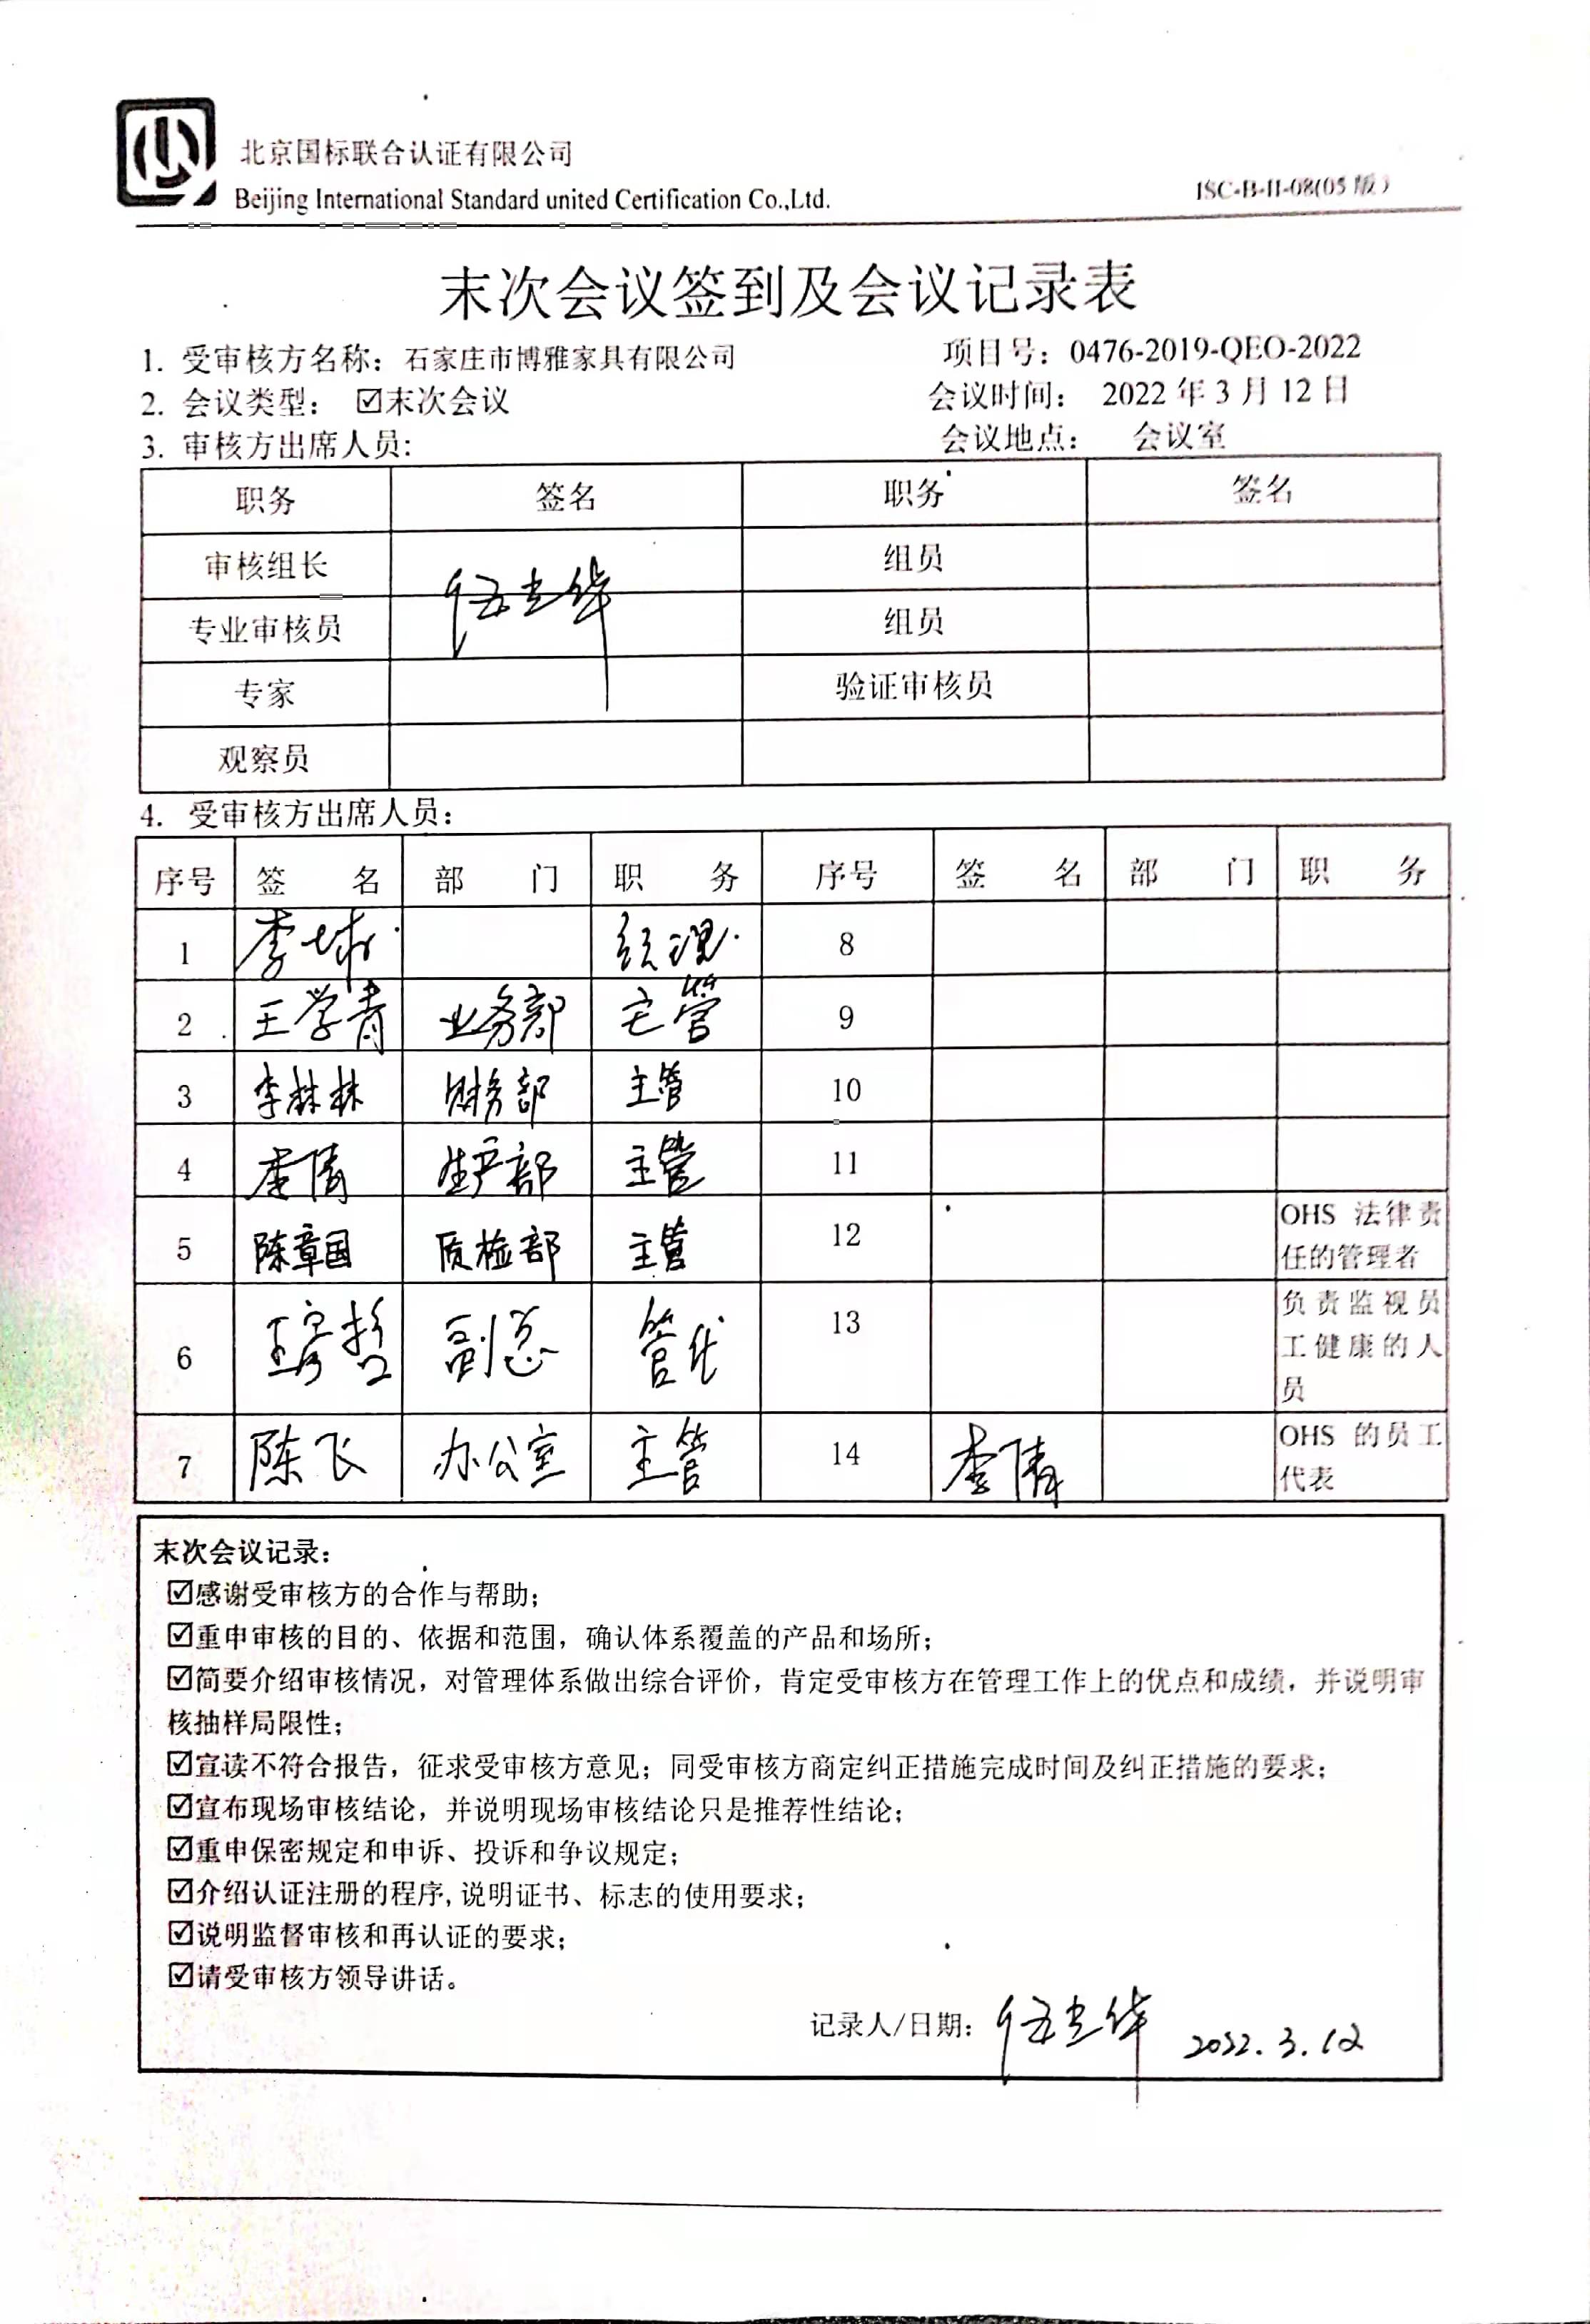 北京国标联合认证有限公司
Beijing International Standard united Certification Co.,Ltd.
ISC-B-II-08(05版)
末次会议签到及会议记录表
1. 受审核方名称：石家庄市博雅家具有限公司 项目号：0476-2019-QEO-2022
2. 会议类型： ☑末次会议 会议时间： 2022 年 3 月 12 日
3. 审核方出席人员: 会议地点： 会议室
职务 签名 职务 签名
审核组长 伍光华 组员
专业审核员 组员
专家 验证审核员
观察员
4. 受审核方出席人员：
序号 签 名 部 门 职 务 序号 签 名 部 门 职 务
1 李 经理 8
2 王学青 业务部 主管 9
3 李林林 财务部 主管 10
4 李倩 生产部 主管 11
5 陈章国 质检部 主管 12 OHS 法律责
任的管理者
6 副总 管代 13 负责监视员
工健康的人
员
7 陈飞 办公室 主管 14 李倩 OHS 的员工
代表
末次会议记录：
☑感谢受审核方的合作与帮助；
☑重申审核的目的、依据和范围，确认体系覆盖的产品和场所；
☑简要介绍审核情况，对管理体系做出综合评价，肯定受审核方在管理工作上的优点和成绩，并说明审
核抽样局限性；
☑宣读不符合报告，征求受审核方意见；同受审核方商定纠正措施完成时间及纠正措施的要求；
☑宣布现场审核结论，并说明现场审核结论只是推荐性结论；
☑重申保密规定和申诉、投诉和争议规定；
☑介绍认证注册的程序, 说明证书、标志的使用要求；
☑说明监督审核和再认证的要求；
☑请受审核方领导讲话。
记录人/日期： 伍光华 2022.3.12